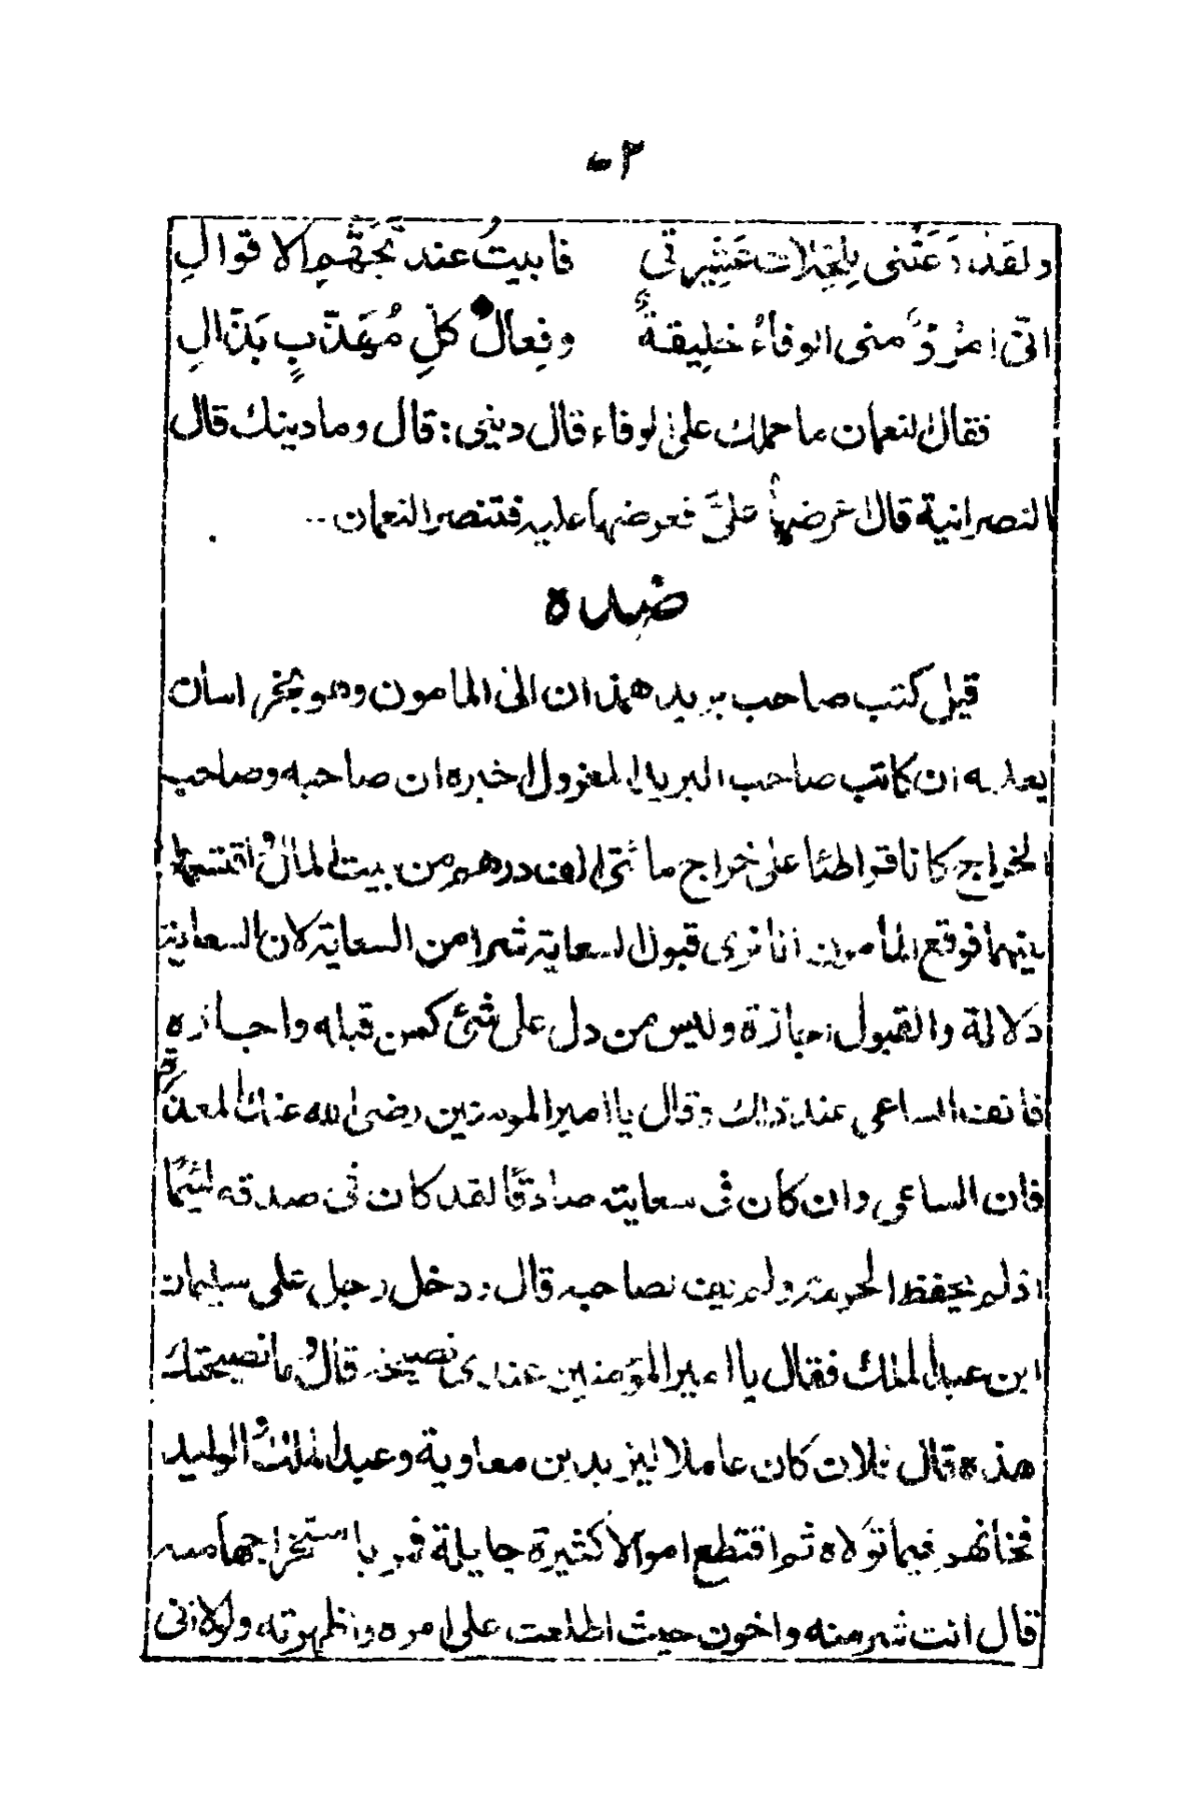 ولقد دَعَتْنى لِلخِلاتِ عَشِيرتى فابيتُ عند تَجَهُّمِ الاقوالِ
انّى امْرُؤٌ منى الوفاءُ خَلِيقةٌ وفِعالُ كلِّ مُهَذّبٍ بَذّالِ
فقال النعمان ما حملك على الوفاء قال دينى : قال وما دينك قال
النصرانية قال اعرضها علىَّ فعرضها عليه فتنصر النعمان ..
ضده
قيل كتب صاحب بريد همذان الى المامون وهو بخراسان
يعلمه ان كاتب صاحب البريد المعزول اخبره ان صاحبه وصاحب
الخراج كانا قواطئا على خراج مائتى الف درهم من بيت المال اقتسماها
بينهما فوقع المأمون انا نرى قبول السعاية شرا من السعاية لان السعاية
دلالة والقبول اجازة وليس من دل على شئ كمن قبله واجازه
فانف الساعى عند ذلك وقال يا امير المومنين رضى الله عنك المعذرة
فان الساعى وان كان فى سعايته صادقًا لقد كان فى صدقه لئيمًا
اذ لم يحفظ الحرمة ولم يف لصاحبه قال ودخل رجل على سليمان
ابن عبد الملك فقال يا امير المؤمنين عندى نصيحة قال وما نصيحتك
هذه قال فلان كان عاملا ليزيد بن معاوية وعبد الملك والوليد
فخانهم فيما تولاه ثم اقتطع اموالا كثيرة جليلة فمر باستخراجها منه
قال انت شر منه واخون حيث اطلعت على امره واظهرته ولولا انى